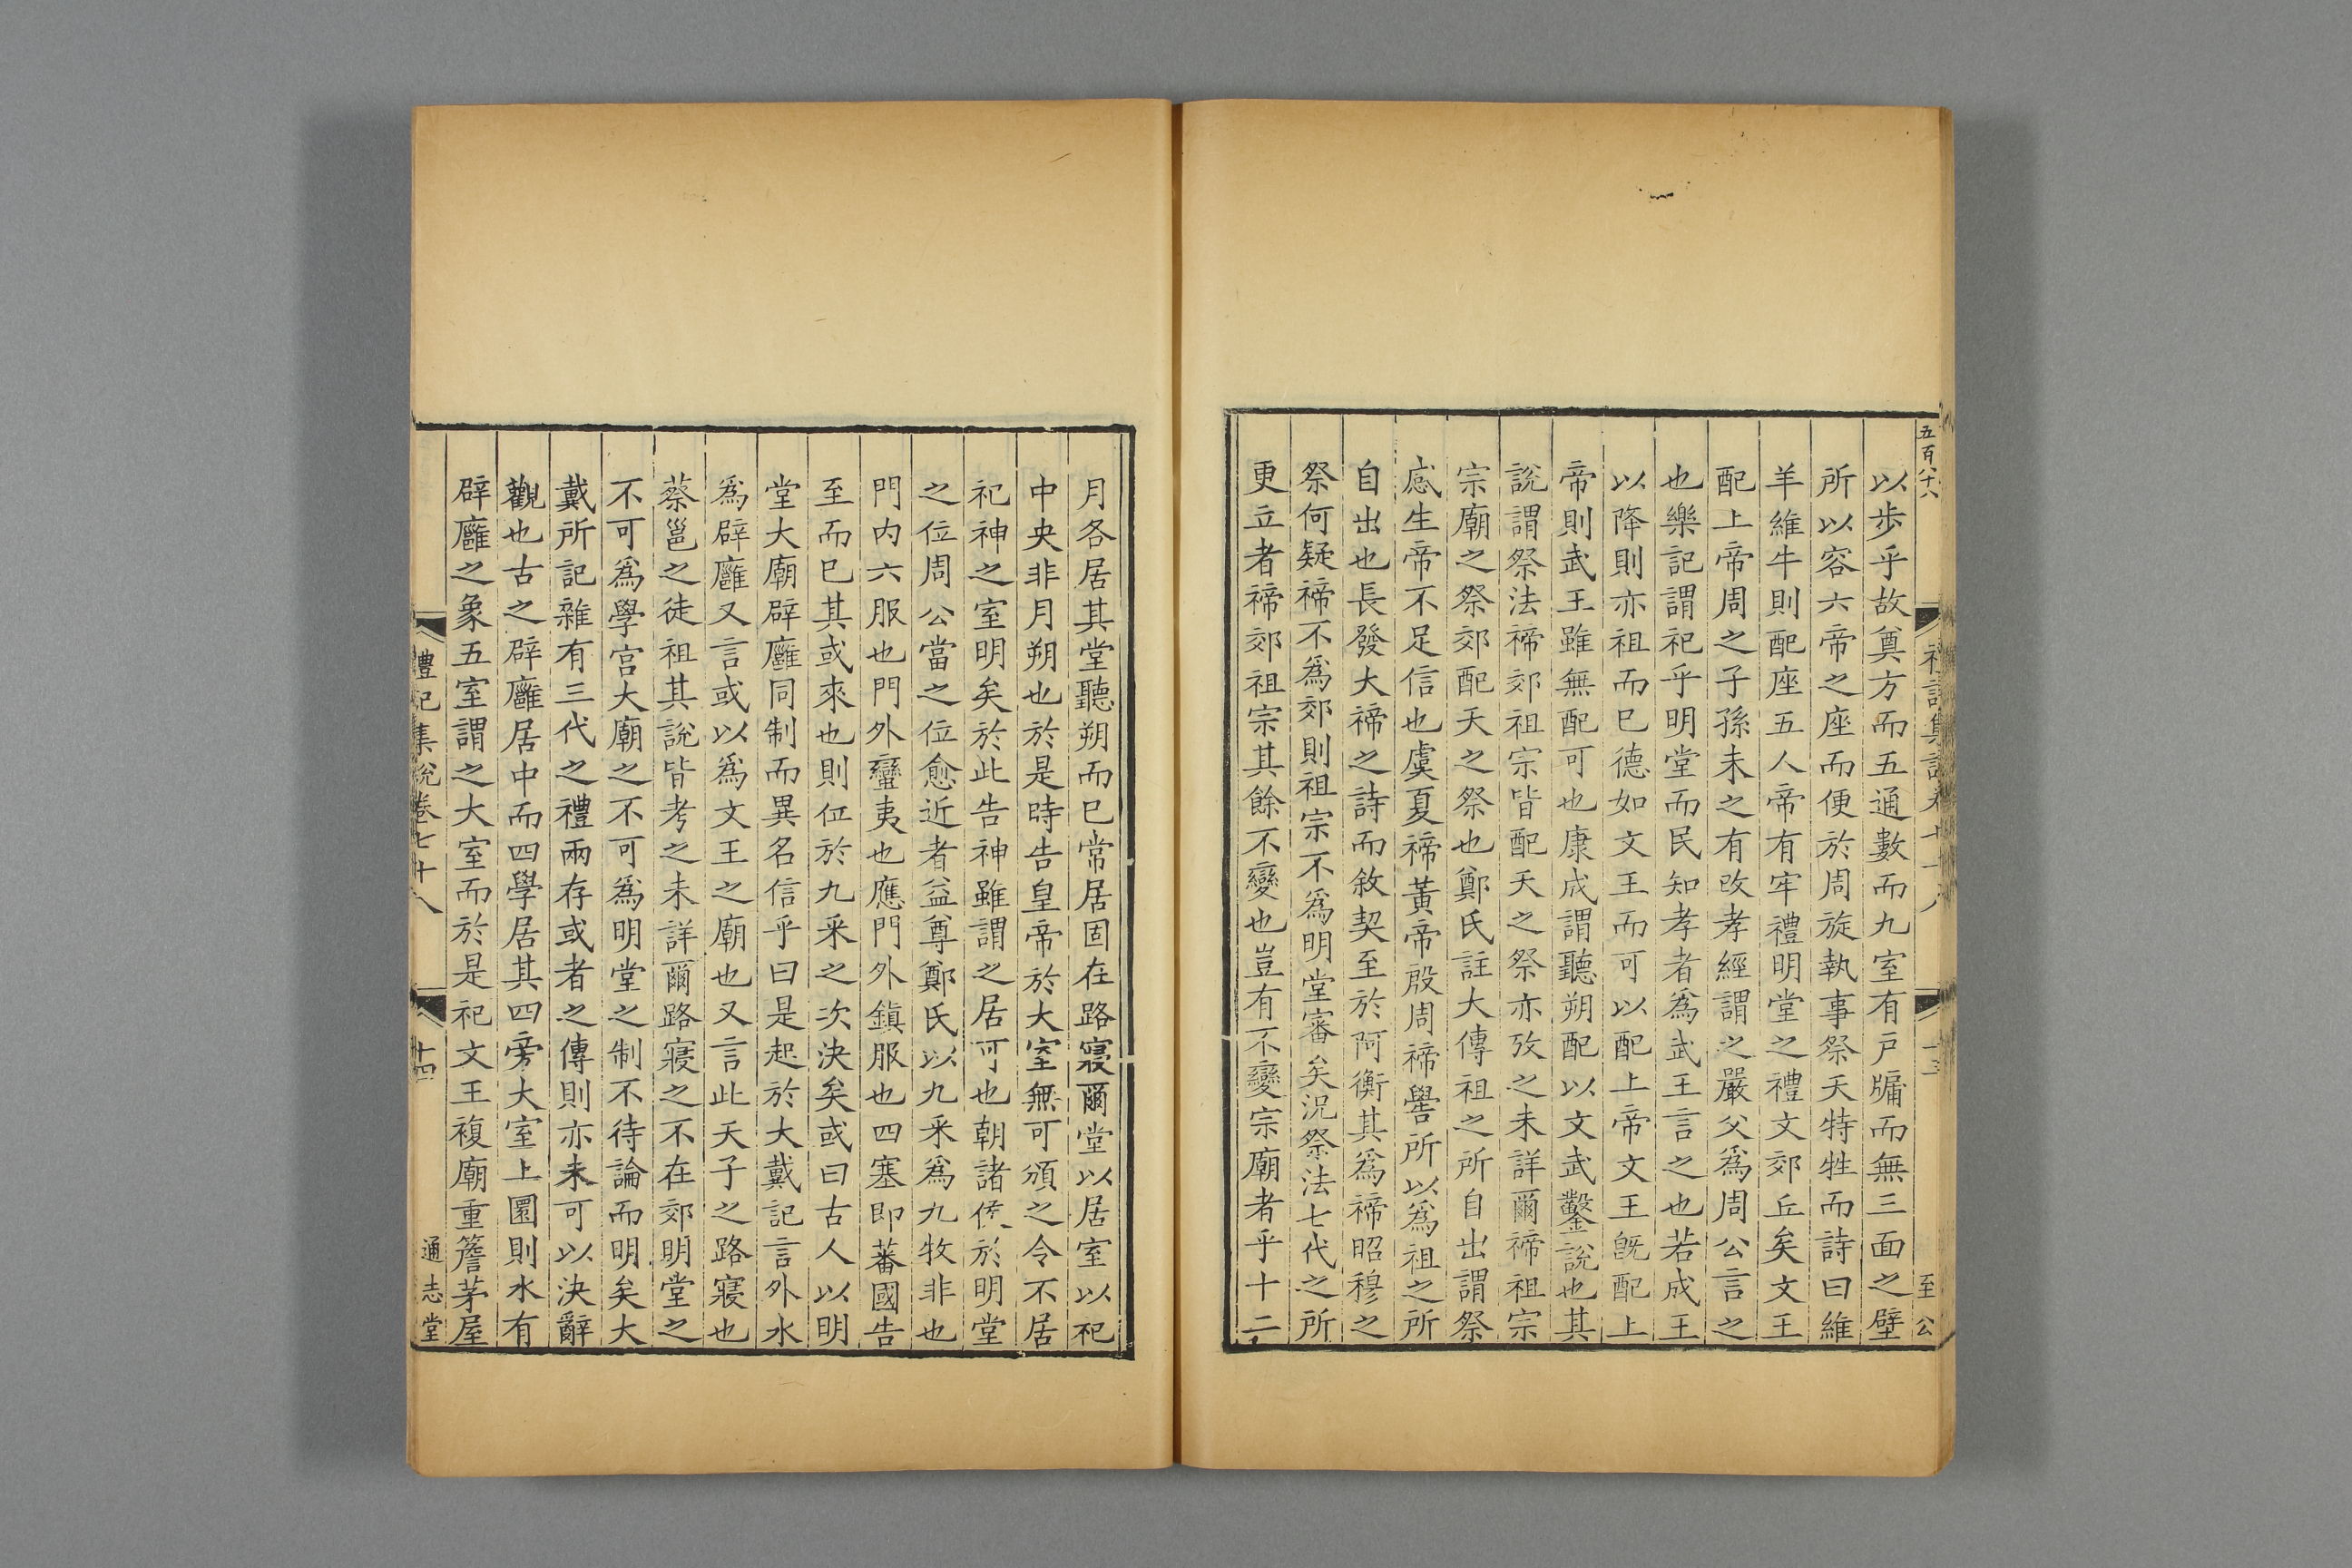 五百八十八
十三
至公
以步乎故奠方而五通數而九室有戸牖而無三面之壁
所以容六帝之座而便於周旋執事祭天特牲而詩曰維
羊維牛則配座五人帝有牢禮明堂之禮文郊丘矣文王
配上帝周之子孫未之有改孝經謂之嚴父爲周公言之
也樂記謂祀乎明堂而民知孝者爲武王言之也若成王
以降則亦祖而巳德如文王而可以配上帝文王旣配上
帝則武王雖無配可也康成謂聽朔配以文武鑿說也其
說謂祭法禘郊祖宗皆配天之祭亦攷之未詳爾禘祖宗
宗廟之祭郊配天之祭也鄭氏註大傳祖之所自出謂祭
感生帝不足信也虞夏禘黃帝殷周禘嚳所以爲祖之所
自出也長發大禘之詩而敘契至於阿衡其爲禘昭穆之
祭何疑禘不爲郊則祖宗不爲明堂審矣況祭法七代之所
更立者禘郊祖宗其餘不變也豈有不變宗廟者乎十二
月各居其堂聽朔而巳常居固在路寢爾堂以居室以祀
中央非月朔也於是時告皇帝於大室無可頒之令不居
祀神之室明矣於此告神雖謂之居可也朝諸侯於明堂
之位周公當之位愈近者益尊鄭氏以九采爲九牧非也
門内六服也門外蠻夷也應門外鎮服也四塞即蕃國告
至而巳其或來也則位於九采之次決矣或曰古人以明
堂大廟辟廱同制而異名信乎曰是起於大戴記言外水
爲辟廱又言或以爲文王之廟也又言此天子之路寢也
蔡邕之徒祖其說皆考之未詳爾路寢之不在郊明堂之
不可爲學宮大廟之不可爲明堂之制不待論而明矣大
戴所記雜有三代之禮兩存或者之傳則亦未可以決辭
觀也古之辟廱居中而四學居其四旁大室上圜則水有
辟廱之象五室謂之大室而於是祀文王複廟重簷茅屋
禮記集說卷七十八
十四
通志堂